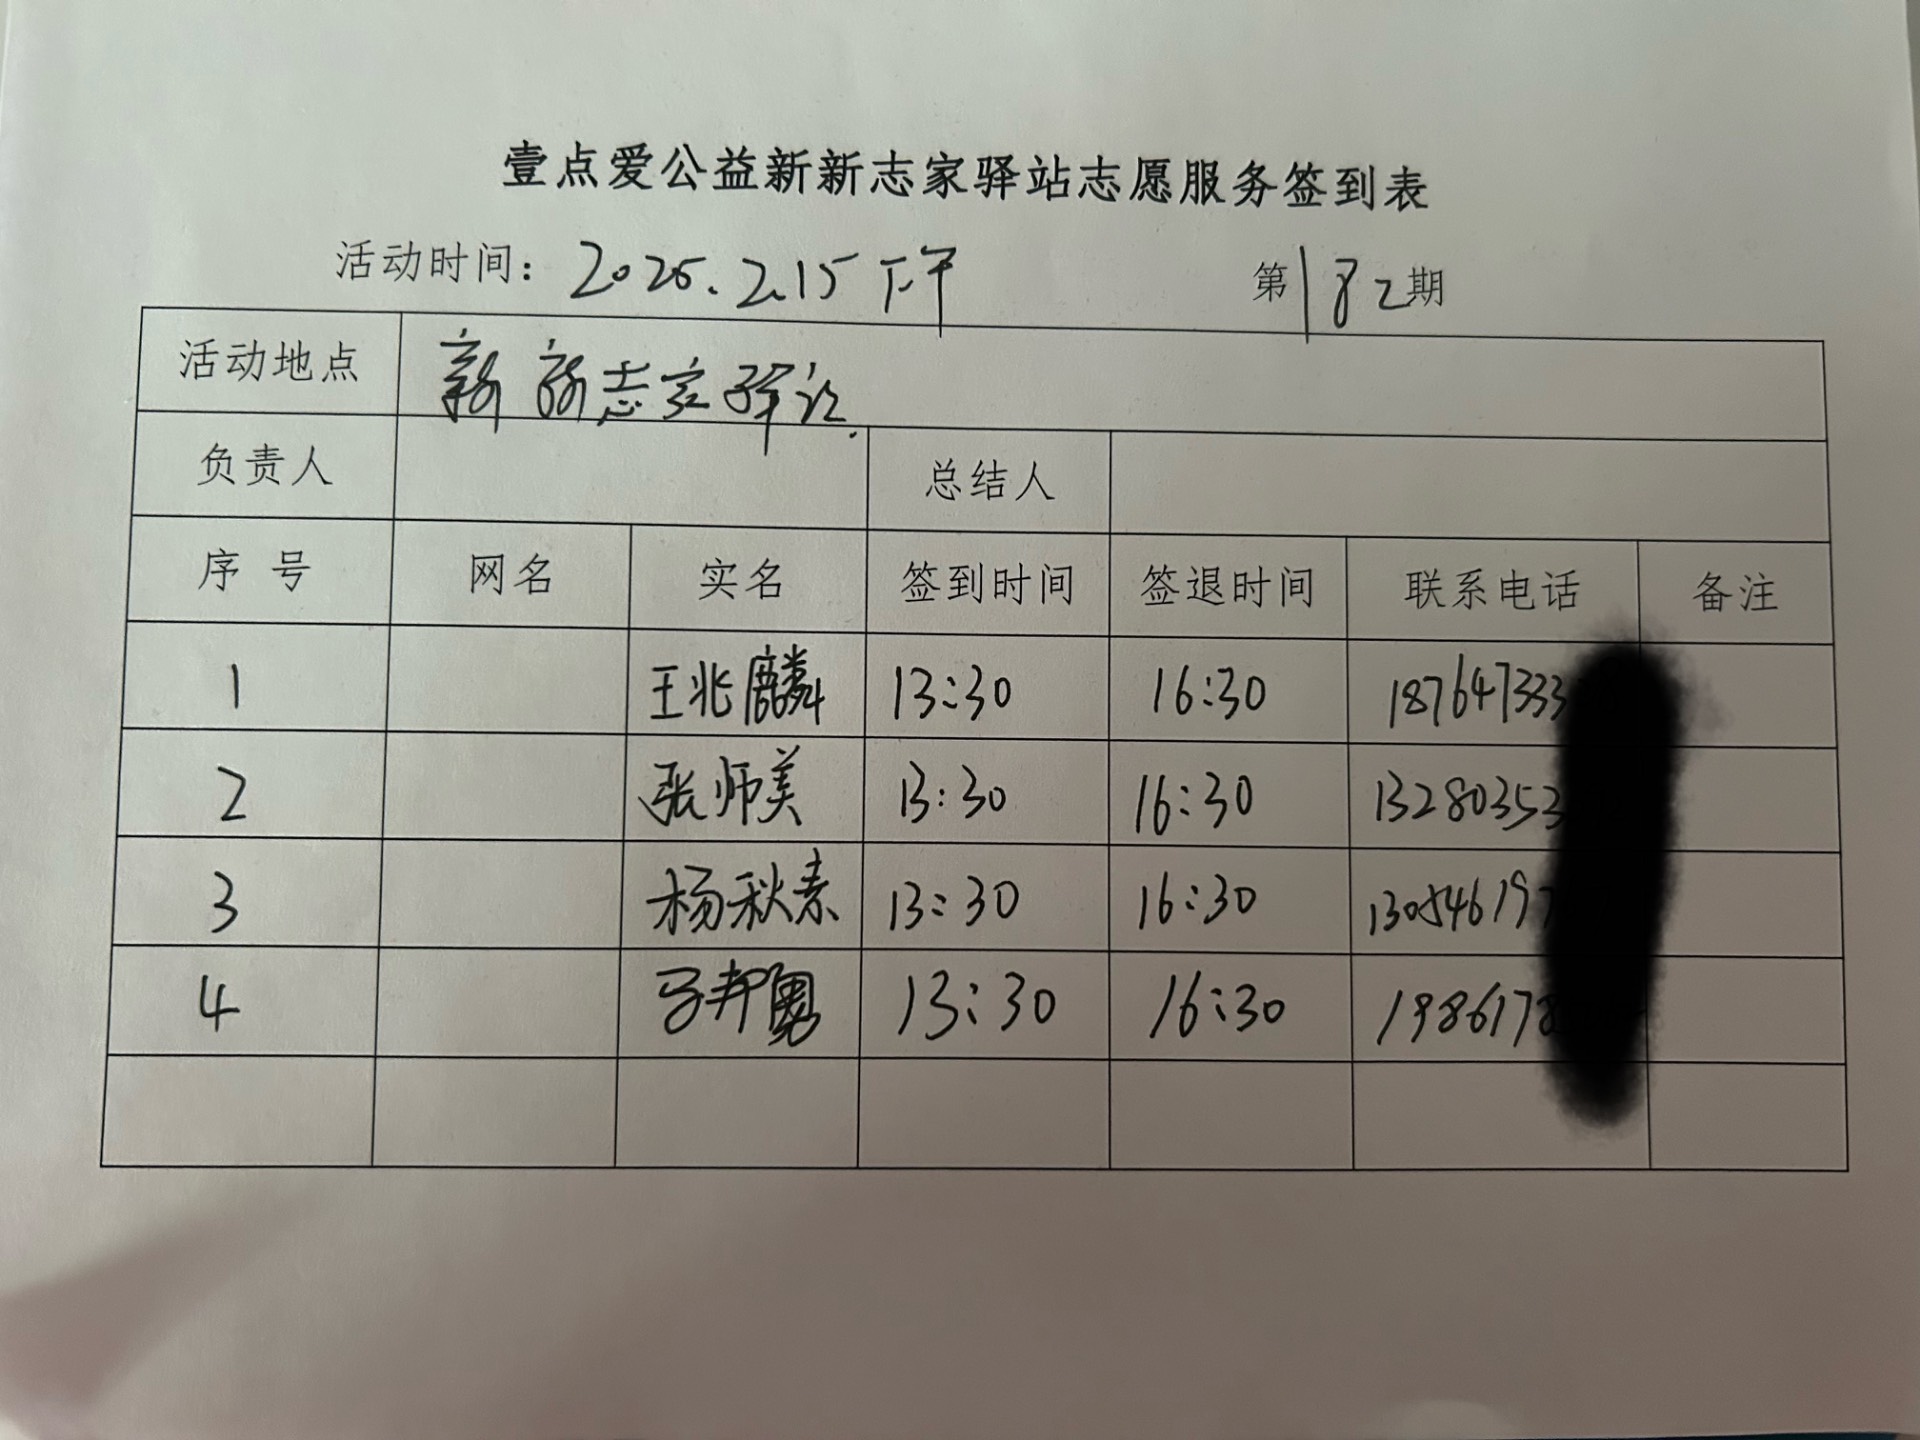 壹点爱公益新新志家驿站志愿服务签到表
活动时间：2025.2.15 下午 第182期
活动地点 新新志家驿站
负责人 总结人
序号 网名 实名 签到时间 签退时间 联系电话 备注
1 王兆麟 13:30 16:30 187647333
2 张师美 13:30 16:30 13280353
3 杨秋素 13:30 16:30 130546197
4 马邦勇 13:30 16:30 1986178